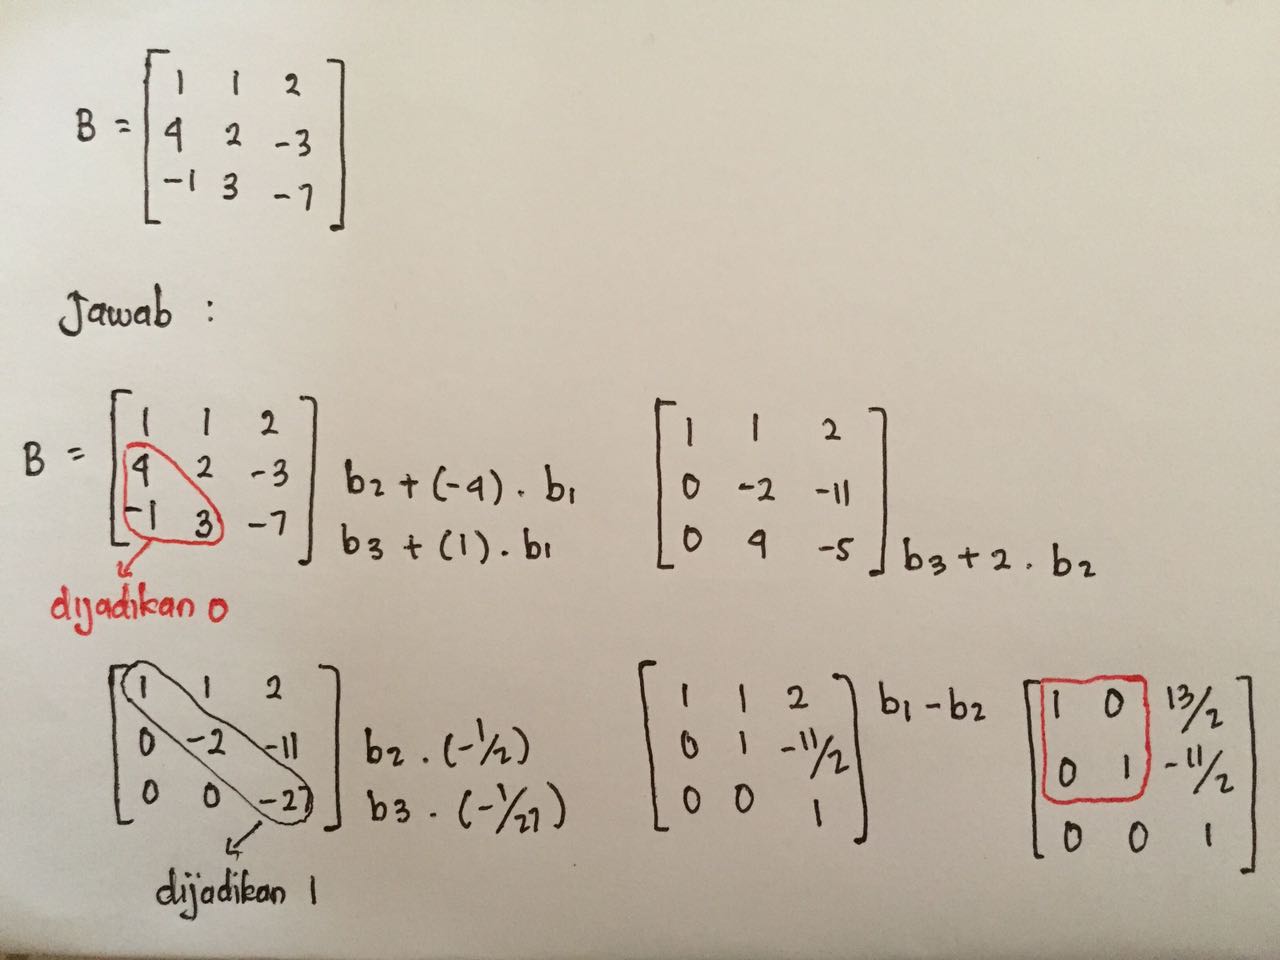 B = [1 1 2
4 2 -3
-1 3 -7]
Jawab :
B = [1 1 2
4 2 -3 b2 + (-4) . b1
-1 3 -7] b3 + (1) . b1
dijadikan 0
[1 1 2
0 -2 -11
0 4 -5] b3 + 2 . b2
[1 1 2
0 -2 -11 b2 . (-1/2)
0 0 -27] b3 . (-1/27)
dijadikan 1
[1 1 2 b1 - b2
0 1 -11/2
0 0 1]
[1 0 13/2
0 1 -11/2
0 0 1]